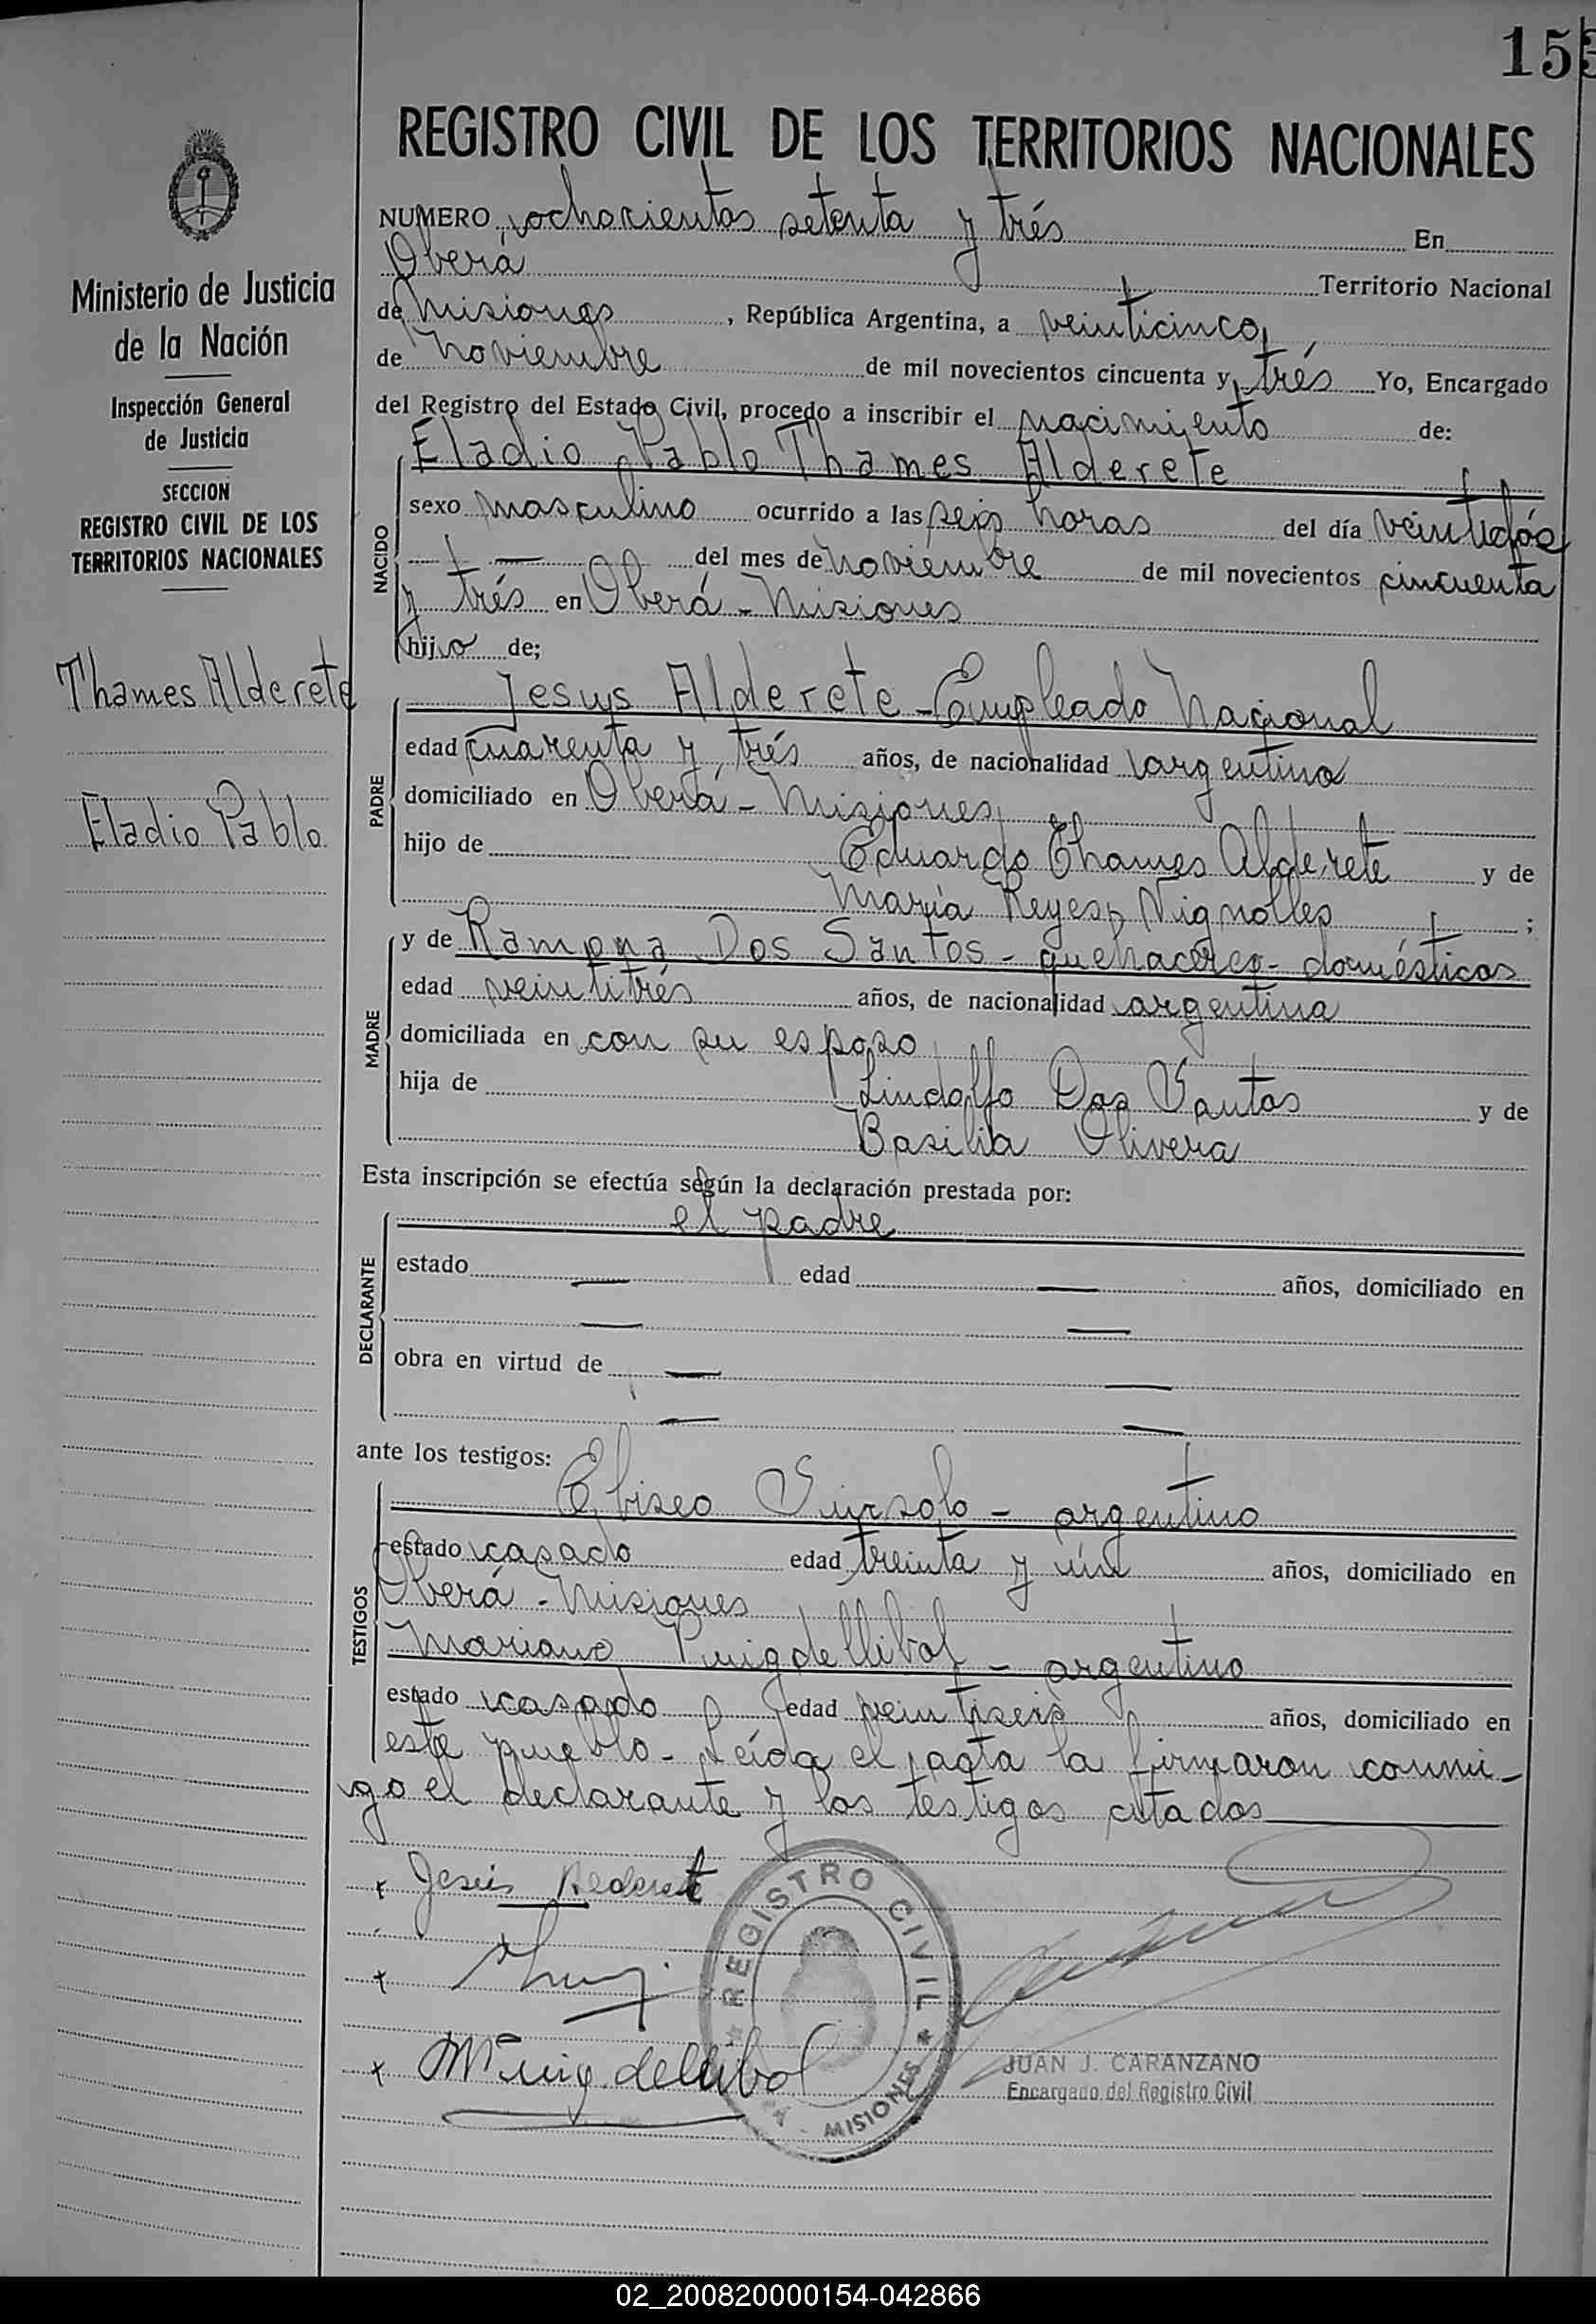 153
REGISTRO CIVIL DE LOS TERRITORIOS NACIONALES
Ministerio de Justicia
de la Nación
Inspección General
de Justicia
SECCION
REGISTRO CIVIL DE LOS
TERRITORIOS NACIONALES
Thames Alderete
Eladio Pablo
NUMERO ochocientos setenta y trés En
Oberá Territorio Nacional
de Misiones, República Argentina, a veinticinco
de Noviembre de mil novecientos cincuenta y trés Yo, Encargado
del Registro del Estado Civil, procedo a inscribir el nacimiento de:
Eladio Pablo Thames Alderete
NACIDO
sexo masculino ocurrido a las seis horas del día veintidós
del mes de Noviembre de mil novecientos cincuenta
y trés en Oberá - Misiones
hijo de;
Jesus Alderete - Empleado Nacional
PADRE
edad cuarenta y trés años, de nacionalidad argentina
domiciliado en Oberá - Misiones
hijo de Eduardo Thames Alderete y de
María Reyes Vignolles ;
MADRE
y de Ramona Dos Santos - quehaceres domésticos
edad veintitrés años, de nacionalidad argentina
domiciliada en con su esposo
hija de Lindolfo Dos Santos y de
Basilia Olivera
Esta inscripción se efectúa según la declaración prestada por:
el padre
DECLARANTE
estado — edad — años, domiciliado en
— —
obra en virtud de — —
— —
ante los testigos:
TESTIGOS
Eliseo - argentino
estado casado edad treinta y un años, domiciliado en
Oberá - Misiones
Mariano Puigdellibol - argentino
estado casado edad veintiseis años, domiciliado en
este pueblo - Leída el acta la firmaron conmi-
go el declarante y los testigos citados
Jesús Alderete
M Puigdellibol
REGISTRO CIVIL
MISIONES
JUAN J. CARANZANO
Encargado del Registro Civil
02_200820000154-042866